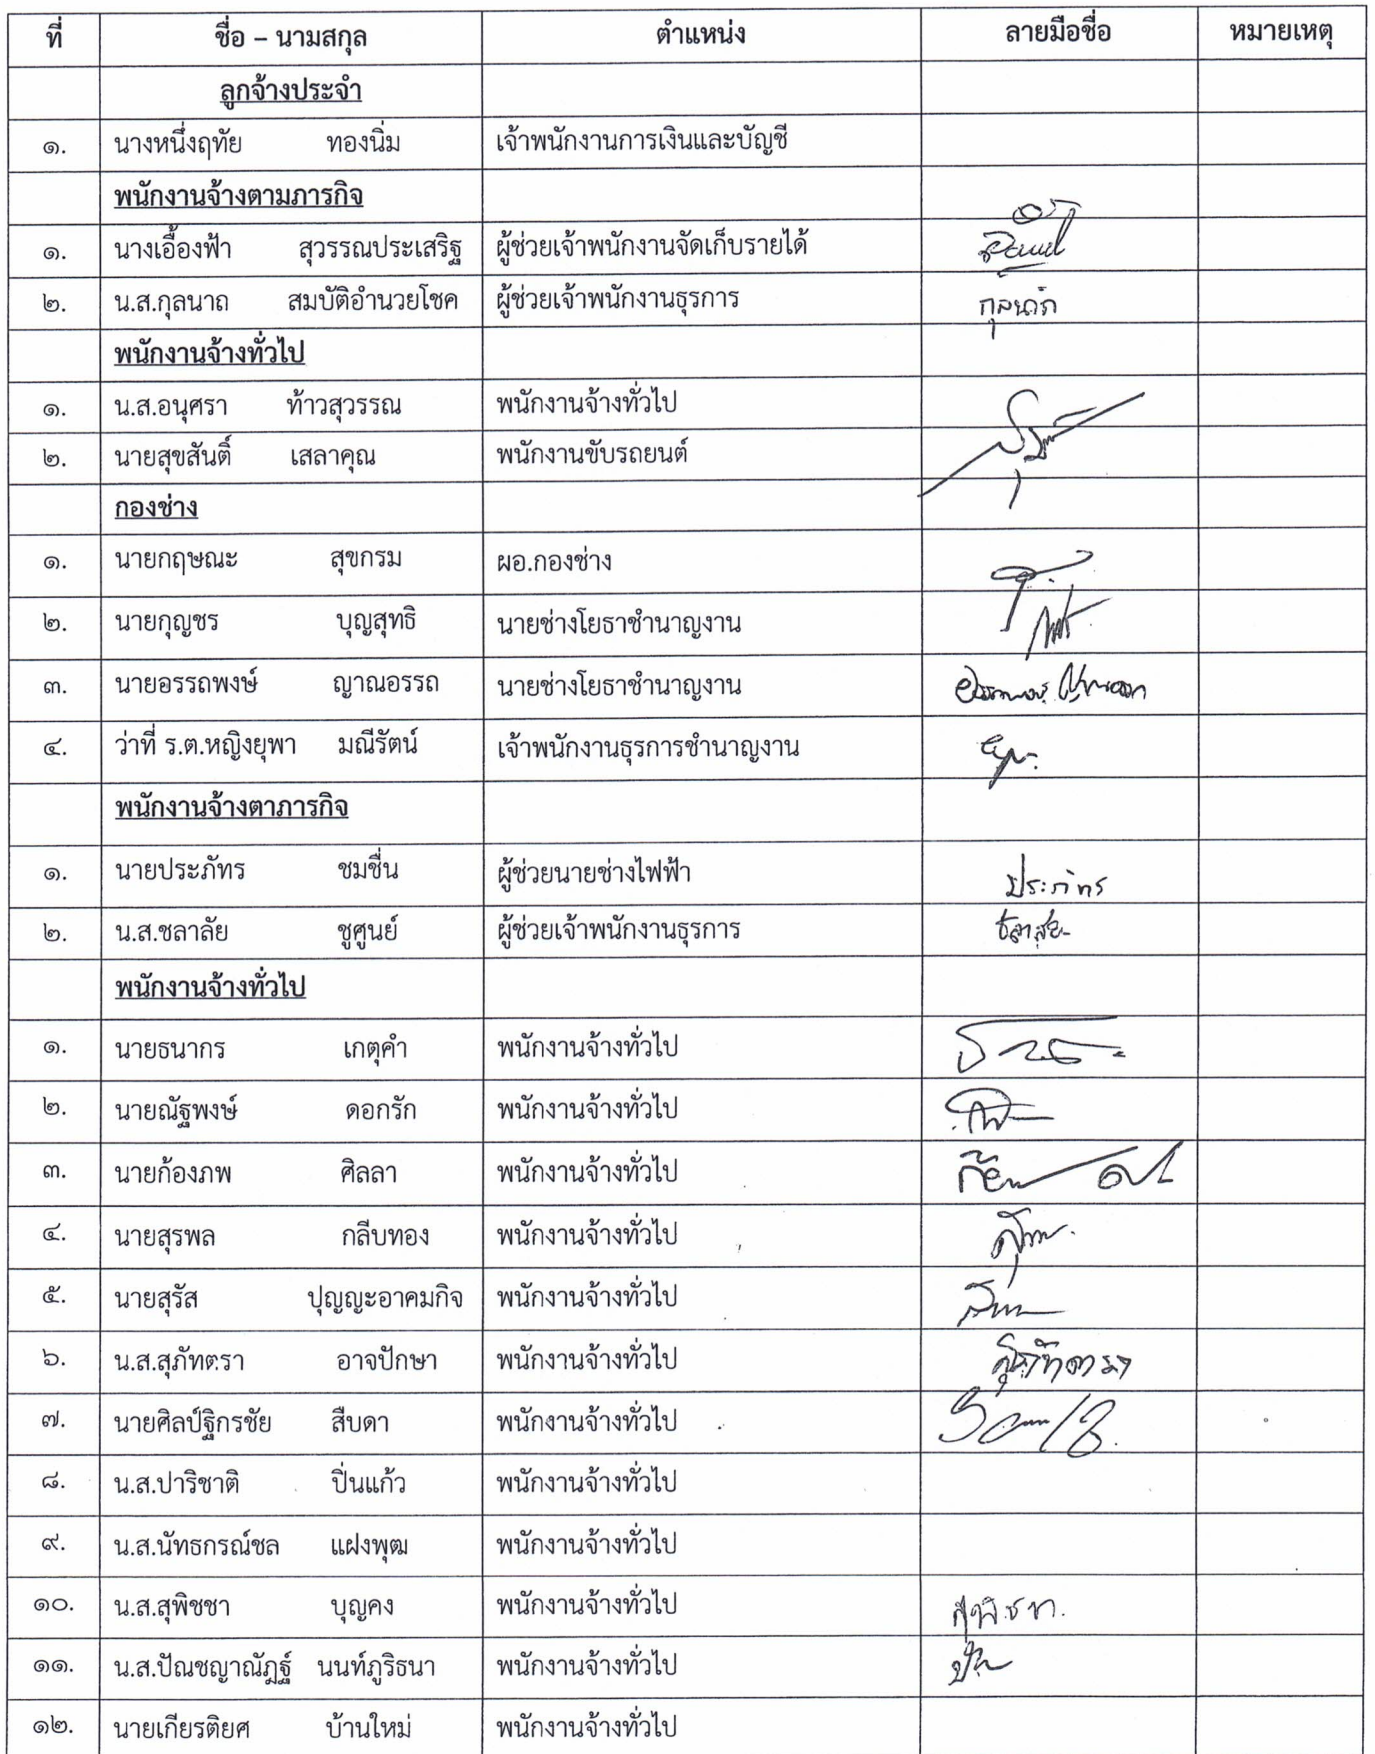 ที่ ชื่อ – นามสกุล ตำแหน่ง ลายมือชื่อ หมายเหตุ
ลูกจ้างประจำ
๑. นางหนึ่งฤทัย ทองนิ่ม เจ้าพนักงานการเงินและบัญชี
พนักงานจ้างตามภารกิจ
๑. นางเอื้องฟ้า สุวรรณประเสริฐ ผู้ช่วยเจ้าพนักงานจัดเก็บรายได้
๒. น.ส.กุลนาถ สมบัติอำนวยโชค ผู้ช่วยเจ้าพนักงานธุรการ กุลนาถ
พนักงานจ้างทั่วไป
๑. น.ส.อนุศรา ท้าวสุวรรณ พนักงานจ้างทั่วไป
๒. นายสุขสันติ์ เสลาคุณ พนักงานขับรถยนต์
กองช่าง
๑. นายกฤษณะ สุขกรม ผอ.กองช่าง
๒. นายกุญชร บุญสุทธิ นายช่างโยธาชำนาญงาน
๓. นายอรรถพงษ์ ญาณอรรถ นายช่างโยธาชำนาญงาน อรรถพงษ์ ญาณอรรถ
๔. ว่าที่ ร.ต.หญิงยุพา มณีรัตน์ เจ้าพนักงานธุรการชำนาญงาน
พนักงานจ้างตาภารกิจ
๑. นายประภัทร ชมชื่น ผู้ช่วยนายช่างไฟฟ้า ประภัทร
๒. น.ส.ชลาลัย ชูศูนย์ ผู้ช่วยเจ้าพนักงานธุรการ ชลาลัย
พนักงานจ้างทั่วไป
๑. นายธนากร เกตุคำ พนักงานจ้างทั่วไป
๒. นายณัฐพงษ์ ดอกรัก พนักงานจ้างทั่วไป
๓. นายก้องภพ ศิลลา พนักงานจ้างทั่วไป
๔. นายสุรพล กลีบทอง พนักงานจ้างทั่วไป
๕. นายสุรัส ปุญญะอาคมกิจ พนักงานจ้างทั่วไป
๖. น.ส.สุภัทตรา อาจปักษา พนักงานจ้างทั่วไป สุภัทตรา
๗. นายศิลป์ฐิกรชัย สืบดา พนักงานจ้างทั่วไป
๘. น.ส.ปาริชาติ ปิ่นแก้ว พนักงานจ้างทั่วไป
๙. น.ส.นัทธกรณ์ชล แฝงพุฒ พนักงานจ้างทั่วไป
๑๐. น.ส.สุพิชชา บุญคง พนักงานจ้างทั่วไป สุพิชชา
๑๑. น.ส.ปัณชญาณัฎฐ์ นนท์ภูริธนา พนักงานจ้างทั่วไป
๑๒. นายเกียรติยศ บ้านใหม่ พนักงานจ้างทั่วไป